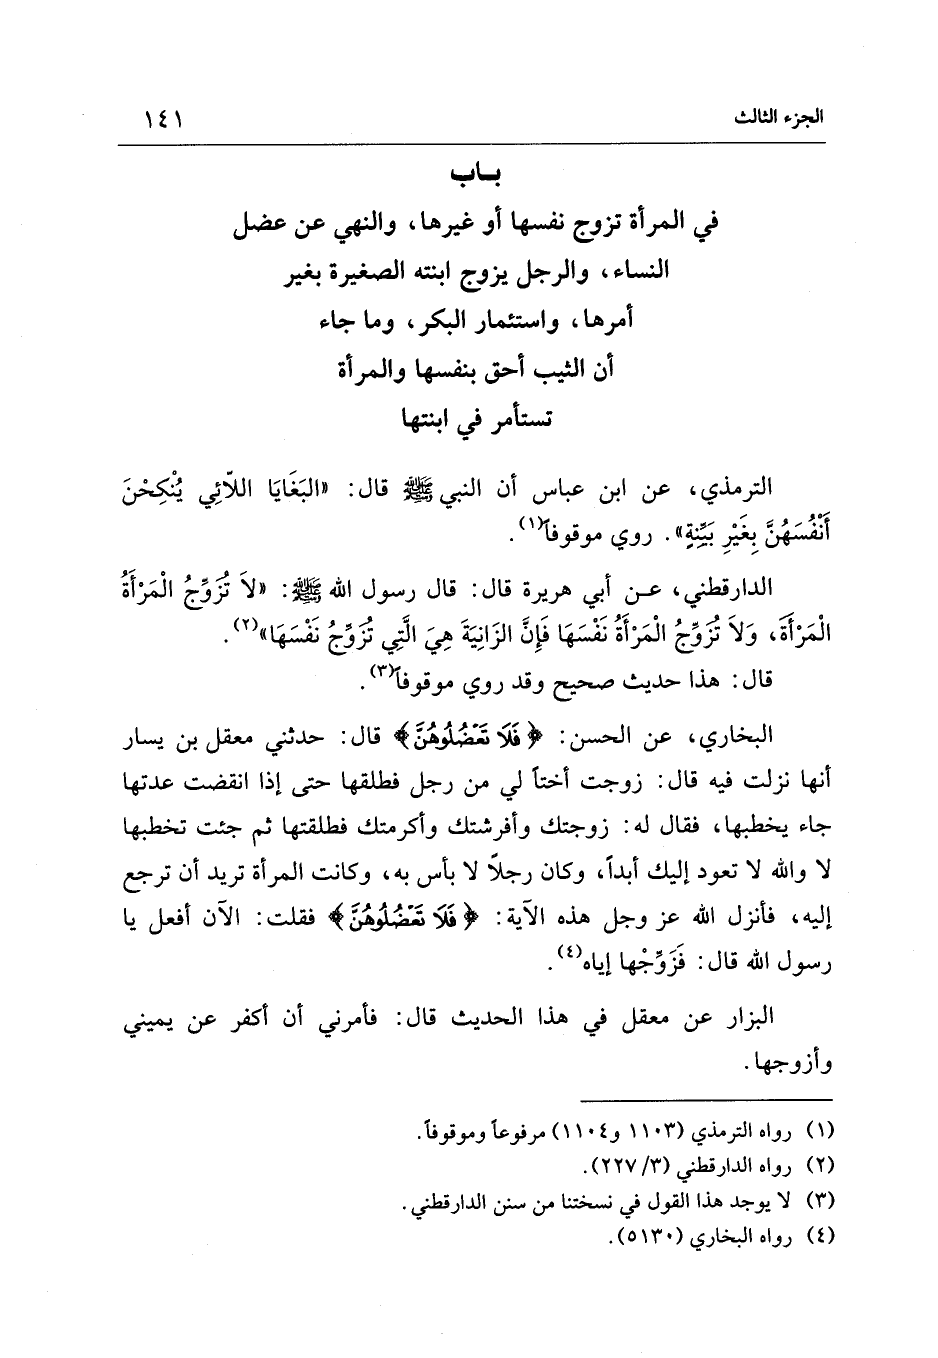 الجزء الثالث ١٤١
بـاب
في المرأة تزوج نفسها أو غيرها، والنهي عن عضل
النساء، والرجل يزوج ابنته الصغيرة بغير
أمرها، واستئمار البكر، وما جاء
أن الثيب أحق بنفسها والمرأة
تستأمر في ابنتها
الترمذي، عن ابن عباس أن النبي ﷺ قال: «البَغَايَا اللاَّئِي يُنْكِحْنَ
أَنْفُسَهُنَّ بِغَيْرِ بَيِّنَةٍ». روي موقوفاً(١).
الدارقطني، عـن أبي هريرة قال: قال رسول الله ﷺ: «لاَ تُزَوِّجُ الْمَرْأَةُ
الْمَرْأَةَ، وَلاَ تُزَوِّجُ الْمَرْأَةُ نَفْسَهَا فَإِنَّ الزَانِيَةَ هِيَ الَّتِي تُزَوِّجُ نَفْسَهَا»(٢).
قال: هذا حديث صحيح وقد روي موقوفاً(٣).
البخاري، عن الحسن: ﴿فَلَا تَعْضُلُوهُنَّ﴾ قال: حدثني معقل بن يسار
أنها نزلت فيه قال: زوجت أختاً لي من رجل فطلقها حتى إذا انقضت عدتها
جاء يخطبها، فقال له: زوجتك وأفرشتك وأكرمتك فطلقتها ثم جئت تخطبها
لا والله لا تعود إليك أبداً، وكان رجلاً لا بأس به، وكانت المرأة تريد أن ترجع
إليه، فأنزل الله عز وجل هذه الآية: ﴿فَلَا تَعْضُلُوهُنَّ﴾ فقلت: الآن أفعل يا
رسول الله قال: فَزَوِّجْها إياه(٤).
البزار عن معقل في هذا الحديث قال: فأمرني أن أكفر عن يميني
وأزوجها.
(١) رواه الترمذي (١١٠٣ و١١٠٤) مرفوعاً وموقوفاً.
(٢) رواه الدارقطني (٣/ ٢٢٧).
(٣) لا يوجد هذا القول في نسختنا من سنن الدارقطني.
(٤) رواه البخاري (٥١٣٠).